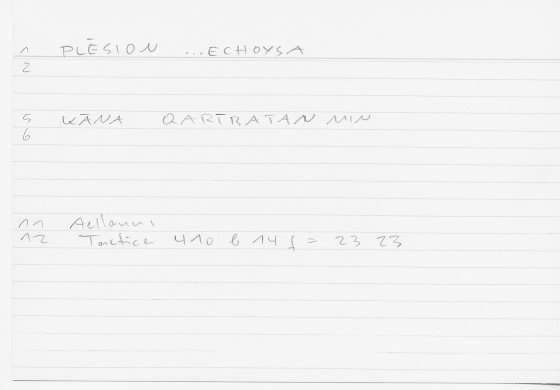 1 PLĒSION ...ECHOYSA
2
5 KĀNA QARĪBATAN MIN
6
11 Aeliani
12 Tactica 410 b 14 f = 23 23